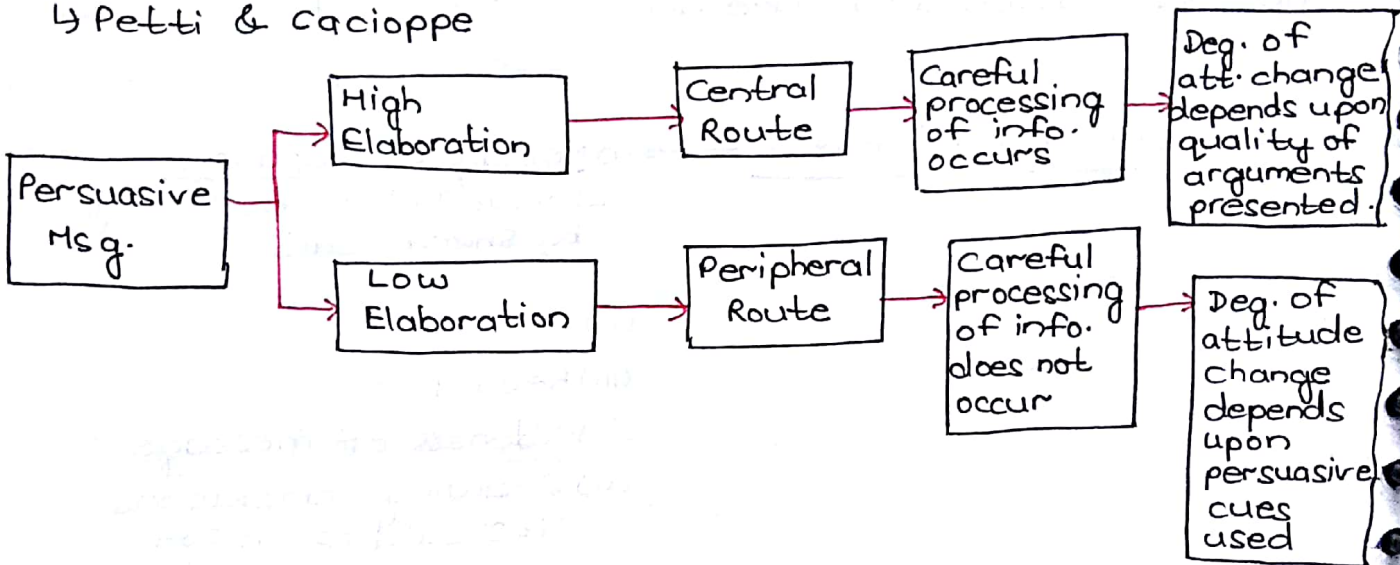 ↳ Petti & Cacioppe
Persuasive
Msg.
High
Elaboration
Central
Route
Careful
processing
of info.
occurs
Deg. of
att. change
depends upon
quality of
arguments
presented.
Low
Elaboration
Peripheral
Route
Careful
processing
of info.
does not
occur
Deg. of
attitude
change
depends
upon
persuasive
cues
used